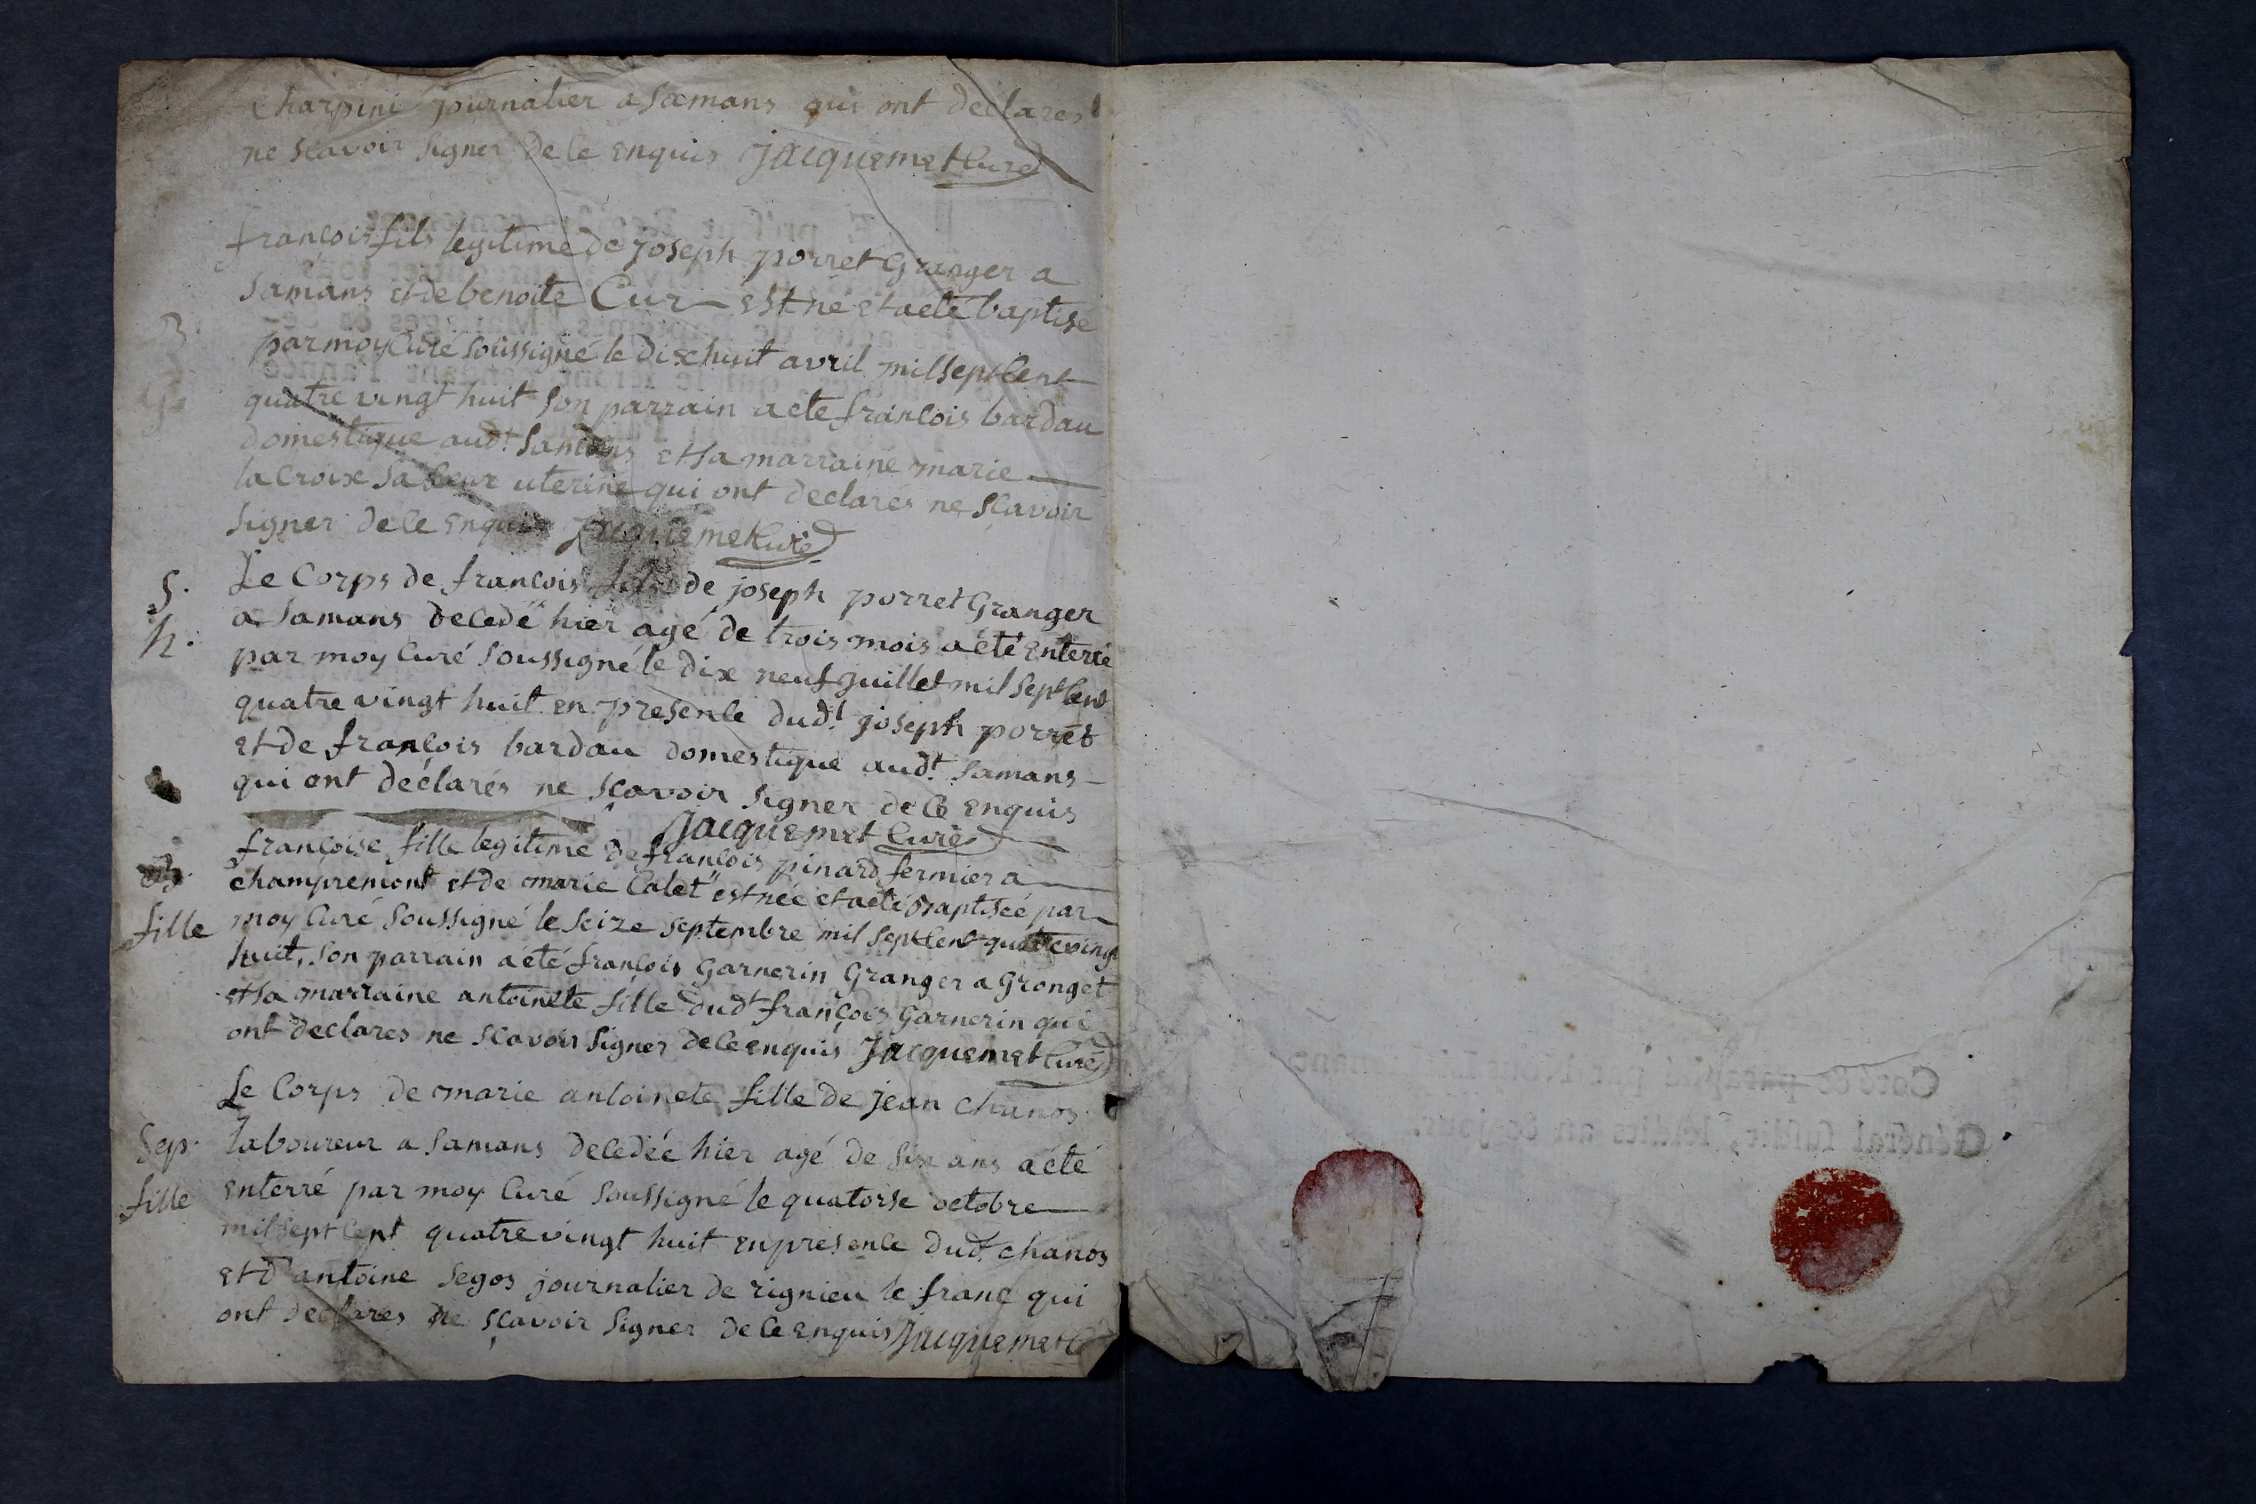 charpini journalier a Samans qui ont declarés
ne scavoir signer de ce enquis Jacquemet Curé
françois fils legitime de joseph porret Granger a
Samans et de benoite Cur est né et a eté baptisé
par moy Curé soussigné le dixhuit avril mil sept Cent
quatre vingt huit son parrain a eté françois bardau
domestique audt. Samans et sa marraine marie
la Croix sa seur uterine qui ont declarés ne sçavoir
signer de ce enquis Jacquemet Curé
S.
h.
Le Corps de françois fils de joseph porret Granger
a Samans decedé hier agé de trois mois a été enterré
par moy Curé soussigné le dix neuf juillet mil sept Cent
quatre vingt huit en presence dudt. joseph porret
et de françois bardau domestique audt. Samans
qui ont déclarés ne sçavoir signer de ce enquis
Jacquemet Curé
françoise fille legitime de françois pinard fermier a
champremont et de marie Calet est née et a eté baptisée par
fille
moy Curé soussigné le seize septembre mil sept Cent quatre vingt
huit, son parrain a été françois Garnerin Granger a Gronget
et sa marraine antoinete fille dudt françois Garnerin qui
ont declares ne scavoir signer de ce enquis Jacquemet Curé
Le Corps de marie antoinete fille de jean chanos
Sep.
fille
laboureur a Samans decedée hier agé de six ans a été
enterré par moy Curé soussigné le quatorse octobre
mil sept Cent quatre vingt huit en presence dudt. chanos
et d'antoine Segos journalier de rignieu le franc qui
ont declares ne sçavoir signer de ce enquis Jacquemet C